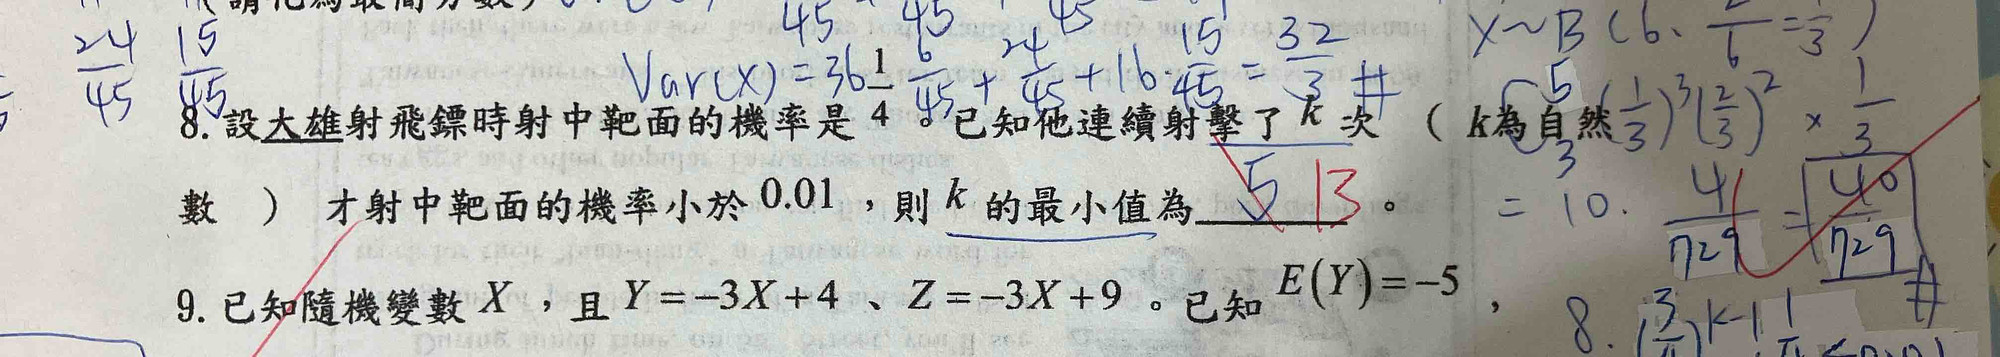 24/45 15/45
Var(X) = 36 · 6/45 + 24/45 + 16 · 15/45 = 32/3 #
X~B(6、2/6 = 1/3)
8. 設大雄射飛鏢時射中靶面的機率是 1/4 。已知他連續射擊了 k 次 ( k為自然
數 ) 才射中靶面的機率小於 0.01,則 k 的最小值為 5 13 。
C 5 3 (1/3)^3 (2/3)^2 × 1/3
= 10 · 4/729 = 40/729 #
9. 已知隨機變數 X ,且 Y = −3X + 4 、 Z = −3X + 9 。已知 E(Y) = −5 ,